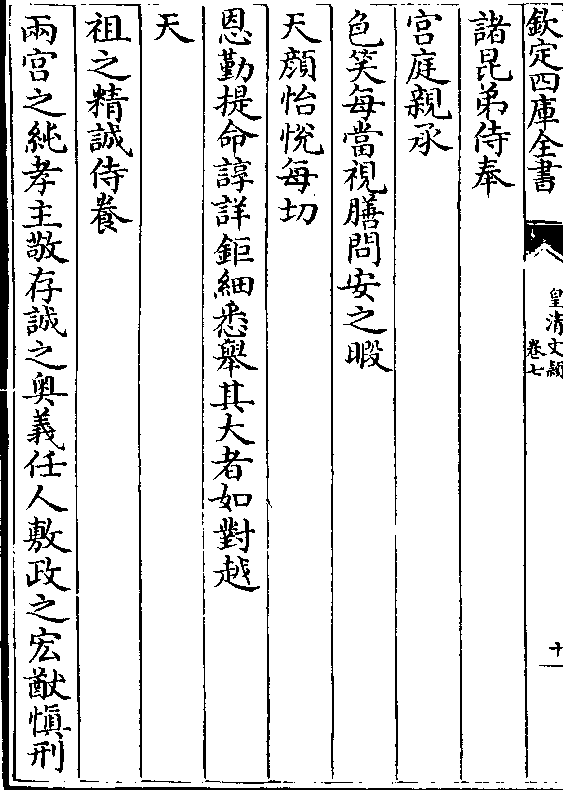 欽定四庫全書
皇清文穎
卷七
十
諸昆弟侍奉
宫庭親承
色笑每當視膳問安之暇
天顔怡悅每切
恩勤提命諄詳鉅細悉舉其大者如對越
天
祖之精誠侍養
兩宫之純孝主敬存誠之奥義任人敷政之宏猷慎刑